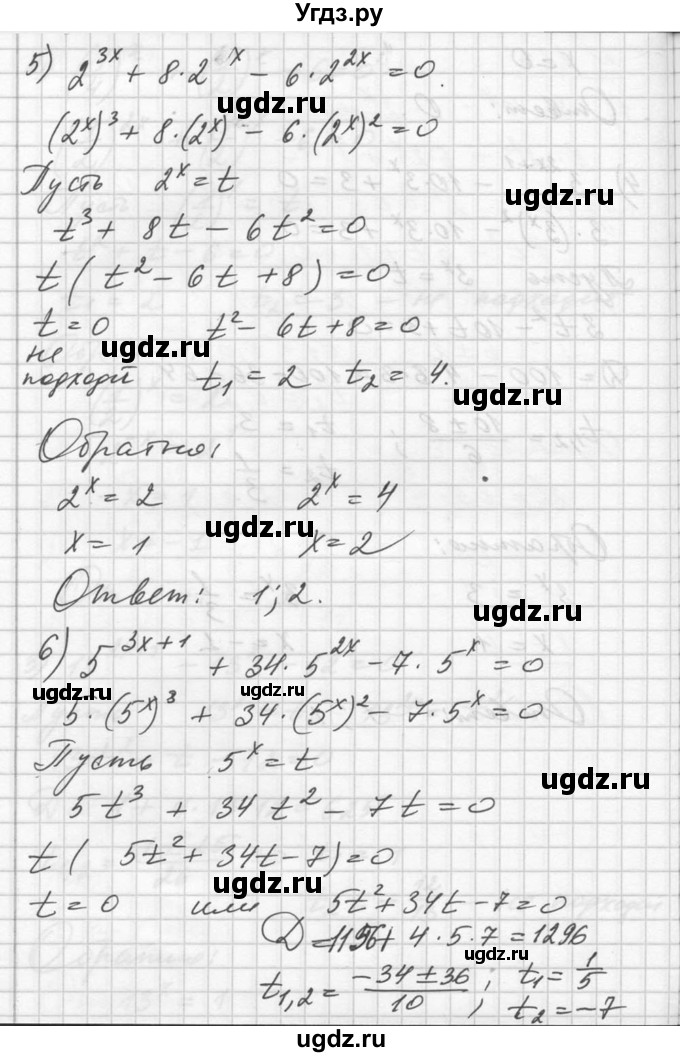 Угдз.ру
5) 2^{3x} + 8·2^x − 6·2^{2x} = 0.
(2^x)^3 + 8·(2^x) − 6·(2^x)^2 = 0
Пусть 2^x = t
t^3 + 8t − 6t^2 = 0
t(t^2 − 6t + 8) = 0
t = 0 t^2 − 6t + 8 = 0
не
подходи t_1 = 2 t_2 = 4.
Обратно:
2^x = 2 2^x = 4
x = 1 x = 2
Ответ: 1; 2.
6) 5^{3x+1} + 34·5^{2x} − 7·5^x = 0
5·(5^x)^3 + 34·(5^x)^2 − 7·5^x = 0
Пусть 5^x = t
5t^3 + 34t^2 − 7t = 0
t(5t^2 + 34t − 7) = 0
t = 0 или 5t^2 + 34t − 7 = 0
D = 1156 + 4·5·7 = 1296
t_{1,2} = \frac{−34 ± 36}{10}; t_1 = \frac{1}{5}
, t_2 = −7
ugdz.ru
ugdz.ru
ugdz.ru
ugdz.ru
ugdz.ru
ugdz.ru
ugdz.ru
ugdz.ru
ugdz.ru
ugdz.ru
ugdz.ru
ugdz.ru